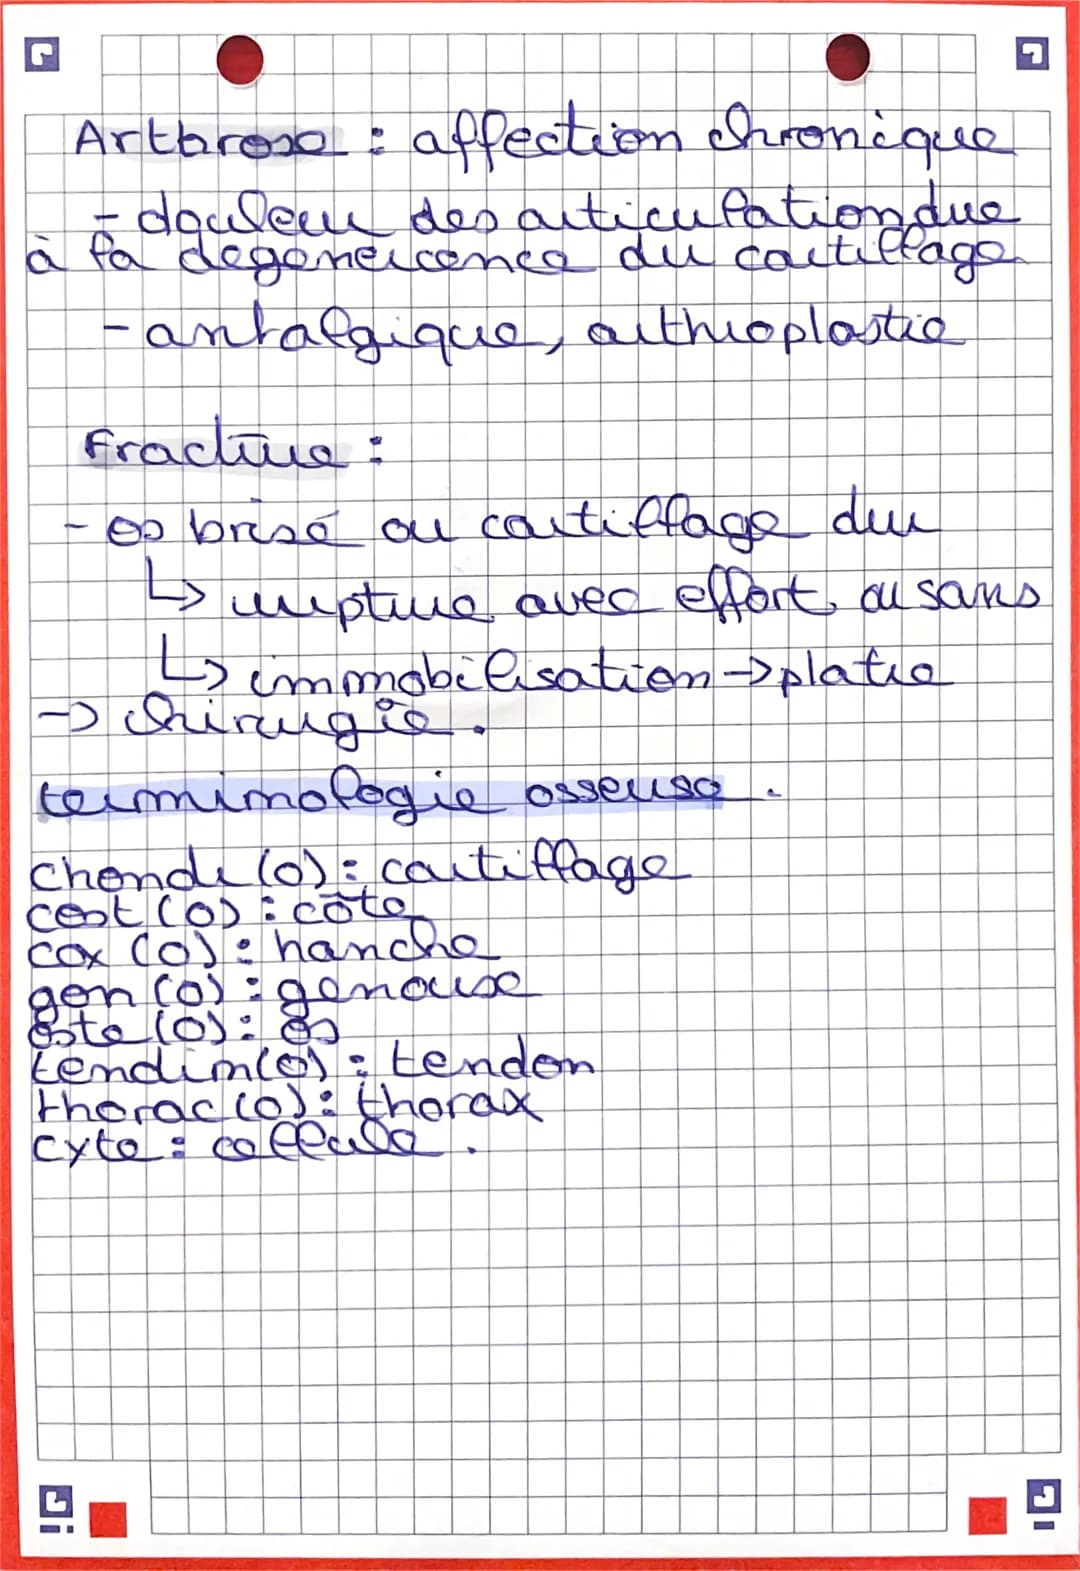 Arthrose : affection chronique
- douleur des articulation due
à la dégénercence du cartillage
- antalgique, arthroplastie
Fracture :
- os brisé ou cartillage dur
↳ rupture avec effort ou sans
↳ immobilisation → platre
→ chirurgie.
terminologie osseuse.
Chondr (o) : cartillage
cost (o) : côte
cox (o) : hanche
gon (o) : genouse
oste (o) : os
tendim (o) : tendon
thorac (o) : thorax
cyte : cellule.